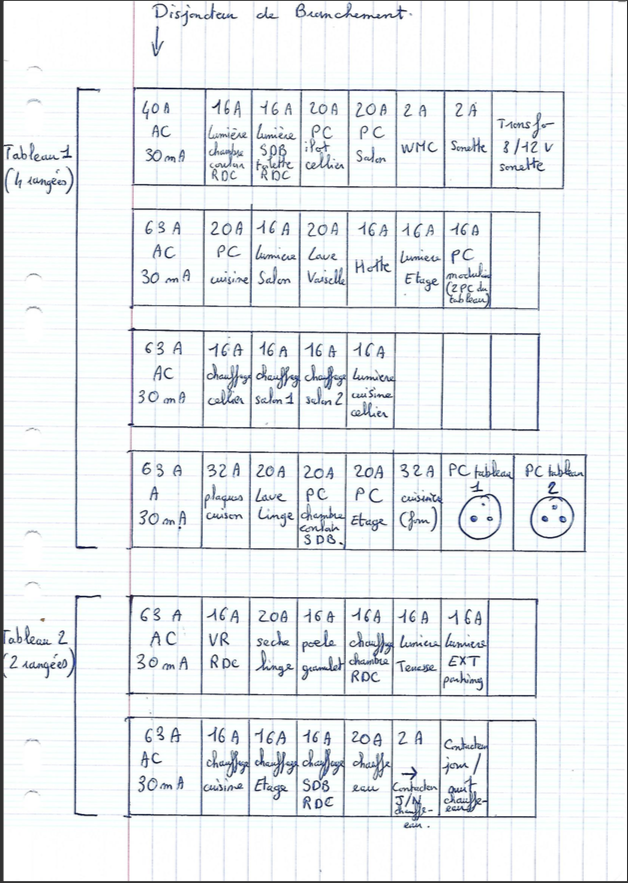 Disjoncteur de Branchement.
Tableau 1
(4 rangées)
40A
AC
30 mA
16A
lumière
chambre
couloir
RDC
16A
lumière
SDB
toilette
RDC
20A
PC
ilot
cellier
20A
PC
Salon
2A
WMC
2A
Sonette
Transfo
8/12 V
sonette
63 A
AC
30 mA
20A
PC
cuisine
16A
lumiere
Salon
20A
Lave
Vaisselle
16A
Hotte
16A
lumiere
Etage
16A
PC
modulaire
(2 PC du
tableau)
63 A
AC
30 mA
16A
chauffage
cellier
16A
chauffage
salon 1
16A
chauffage
salon 2
16A
lumiere
cuisine
cellier
63 A
A
30 mA
32A
plaques
cuisson
20A
Lave
linge
20A
PC
chambre
couloir
SDB.
20A
PC
Etage
32A
cuisiniere
(four)
PC tableau
1
PC tableau
2
Tableau 2
(2 rangées)
63 A
AC
30 mA
16A
VR
RDC
20A
seche
linge
16A
poele
granulet
16A
chauffage
chambre
RDC
16A
lumiere
Terrasse
16A
lumiere
EXT
parking
63A
AC
30 mA
16A
chauffage
cuisine
16A
chauffage
Etage
16A
chauffage
SDB
RDC
20A
chauffe
eau
2 A
→
Contacteur
J/N
chauffe-
eau.
Contacteur
jour/
nuit
chauffe-
eau